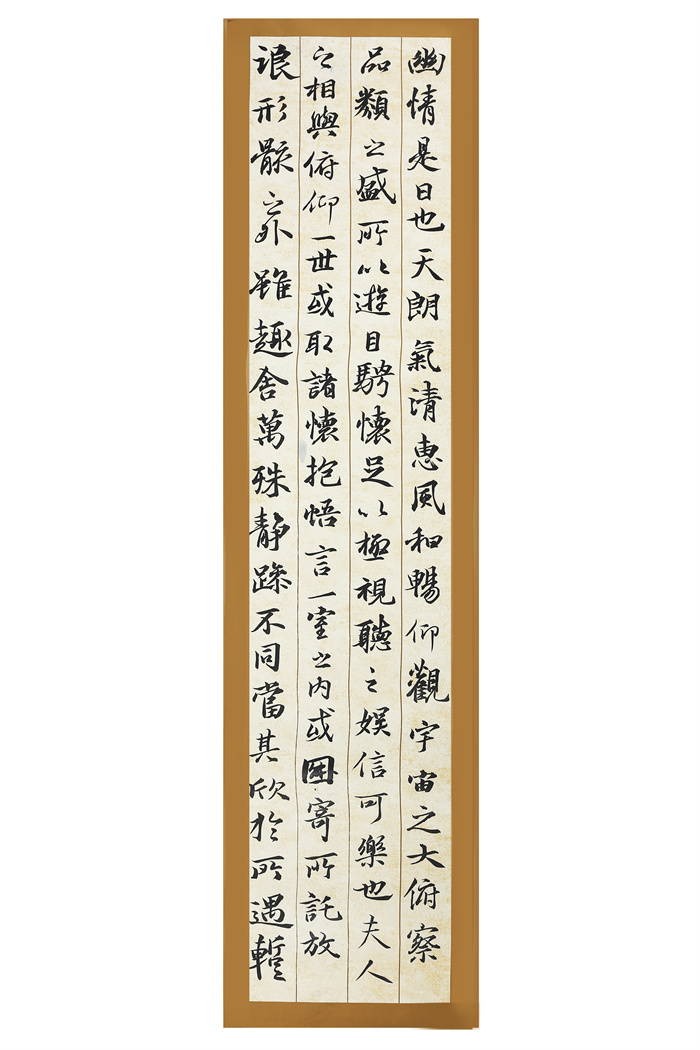 幽情是日也天朗氣清惠風和暢仰觀宇宙之大俯察
品類之盛所以遊目騁懷足以極視聽之娛信可樂也夫人
之相與俯仰一世或取諸懷抱悟言一室之內或因寄所託放
浪形骸之外雖趣舍萬殊靜躁不同當其欣於所遇暫